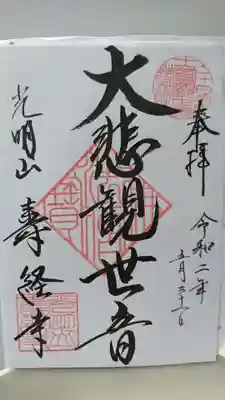 奉拝
令和二年
五月三十一日
大悲観世音
光明山
寿経寺